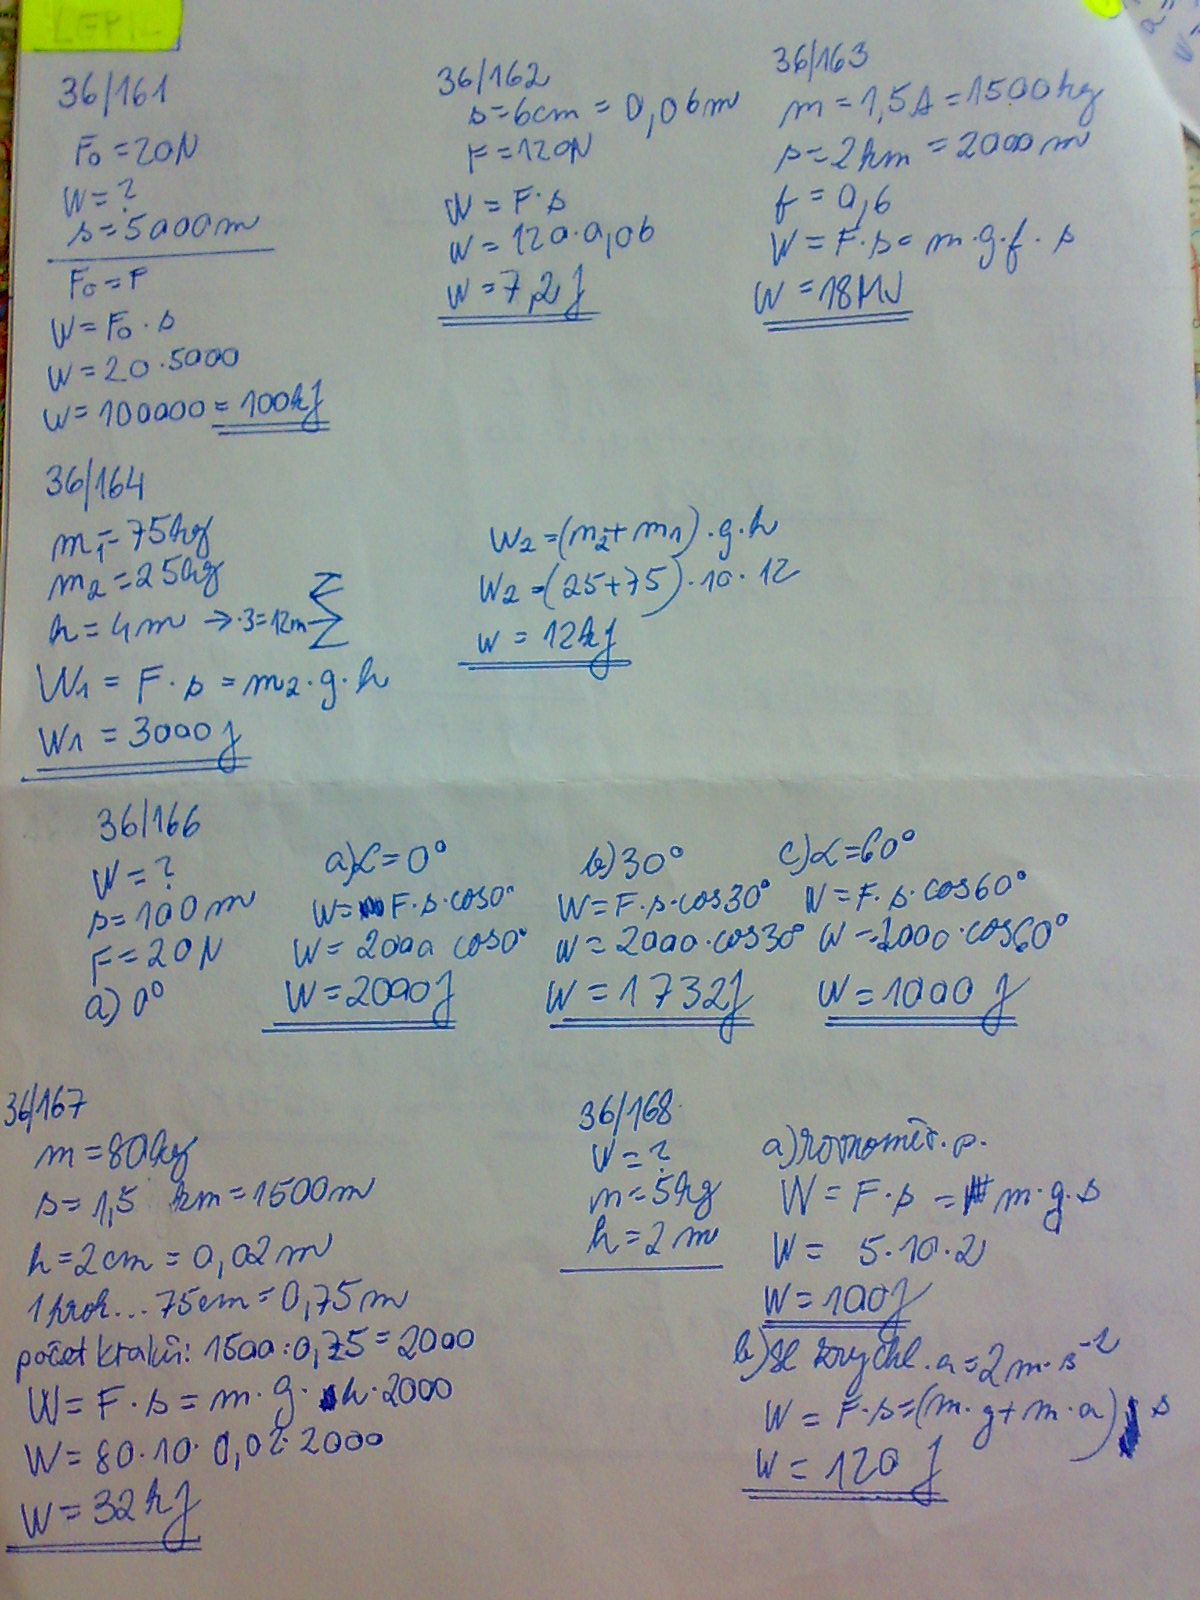 LEPIC
36/161
F₀ = 20N
W = ?
s = 5000m
F₀ = F
W = F₀ · s
W = 20 · 5000
W = 100000 = 100kJ
36/162
s = 6cm = 0,06m
F = 120N
W = F · s
W = 120 · 0,06
W = 7,2J
36/163
m = 1,5t = 1500kg
s = 2km = 2000m
f = 0,6
W = F · s = m · g · f · s
W = 18MJ
36/164
m₁ = 75kg
m₂ = 25kg
h = 4m → ·3 = 12m
W₁ = F · s = m₂ · g · h
W₁ = 3000J
W₂ = (m₂ + m₁) · g · h
W₂ = (25+75) · 10 · 12
W = 12kJ
36/166
W = ?
s = 100m
F = 20N
a) 0°
a) α = 0°
W = F · s · cos0°
W = 2000 cos0°
W = 2000J
b) 30°
W = F · s · cos30°
W = 2000 · cos30°
W = 1732J
c) α = 60°
W = F · s · cos60°
W = 2000 · cos60°
W = 1000J
36/167
m = 80kg
s = 1,5 km = 1500m
h = 2cm = 0,02m
1 krok... 75cm = 0,75m
počet kroků: 1500 : 0,75 = 2000
W = F · s = m · g · h · 2000
W = 80 · 10 · 0,02 · 2000
W = 32kJ
36/168
W = ?
m = 5kg
h = 2m
a) rovnoměr. p.
W = F · s = m · g · s
W = 5 · 10 · 2
W = 100J
b) se zrychl. a = 2m · s⁻²
W = F · s = (m · g + m · a) s
W = 120J